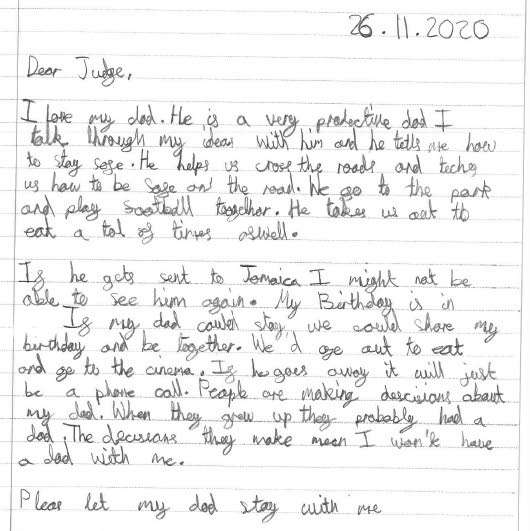 26.11.2020
Dear Judge,
I love my dad. He is a very prodective dad I
talk through my ideas with him and he tells me how
to stay sage. He helps us cross the roads and techs
us how to be sage on the road. We go to the park
and play sootball togethor. He takes us out to
eat a tol of times aswell.
Is he gets sent to Jamaica I might not be
able to see him again. My Birthday is in
Is my dad could stay, we could share my
birthday and be together. We'd go out to eat
and go to the cinema. Is he goes away it will just
be a phone call. People are making descisions about
my dad. When they grew up they probably had a
dad. The decisions they make mean I won't have
a dad with me.
Pleas let my dad stay with me